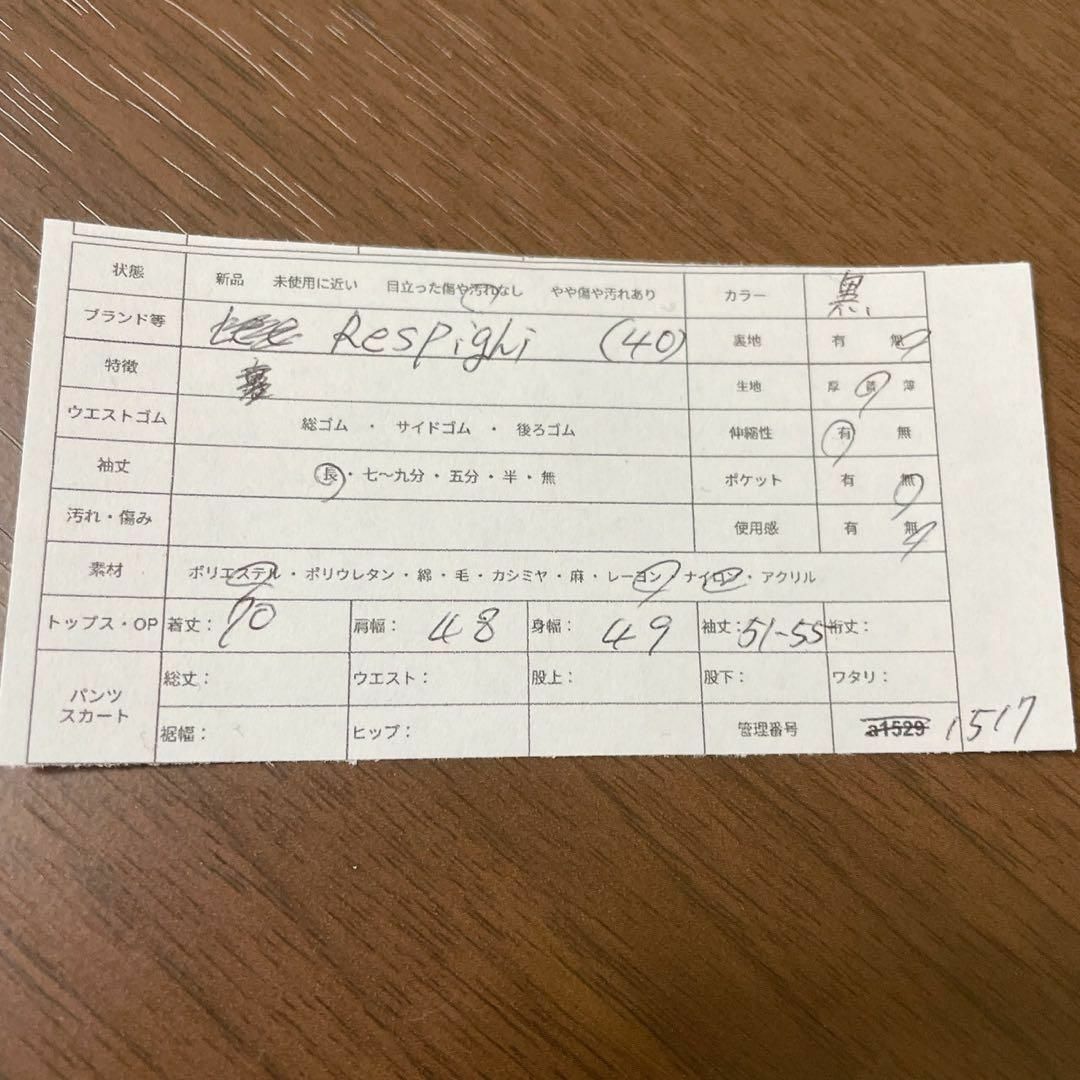 状態 新品 未使用に近い 目立った傷や汚れなし やや傷や汚れあり カラー 黒
ブランド等 Respighi (40) 裏地 有 無
特徴 生地 厚 普 薄
ウエストゴム 総ゴム ・ サイドゴム ・ 後ろゴム 伸縮性 有 無
袖丈 長・七〜九分・五分・半・無 ポケット 有 無
汚れ・傷み 使用感 有 無
素材 ポリエステル・ポリウレタン・綿・毛・カシミヤ・麻・レーヨン・ナイロン・アクリル
トップス・OP 着丈: 70 肩幅: 48 身幅: 49 袖丈: 51-55 裄丈:
パンツ
スカート
総丈: ウエスト: 股上: 股下: ワタリ:
裾幅: ヒップ: 管理番号 a1529 1517